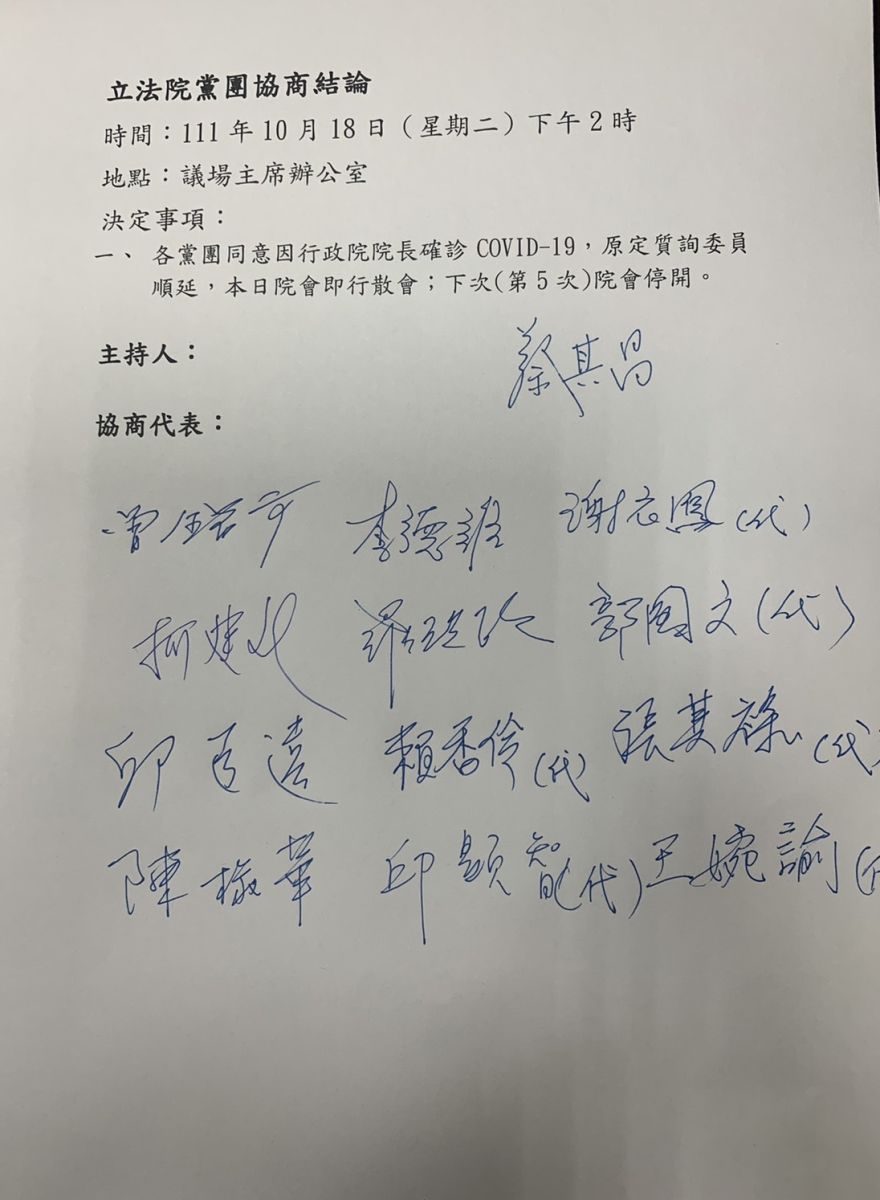 立法院黨團協商結論
時間：111 年 10 月 18 日（星期二）下午 2 時
地點：議場主席辦公室
決定事項：
一、 各黨團同意因行政院院長確診 COVID-19，原定質詢委員
順延，本日院會即行散會；下次(第 5 次)院會停開。
主持人：
蔡其昌
協商代表：
曾銘宗 李德維 謝衣鳳(代)
柯建銘 羅致政 郭國文(代)
邱臣遠 賴香伶(代) 張其祿(代)
陳椒華 邱顯智(代) 王婉諭(